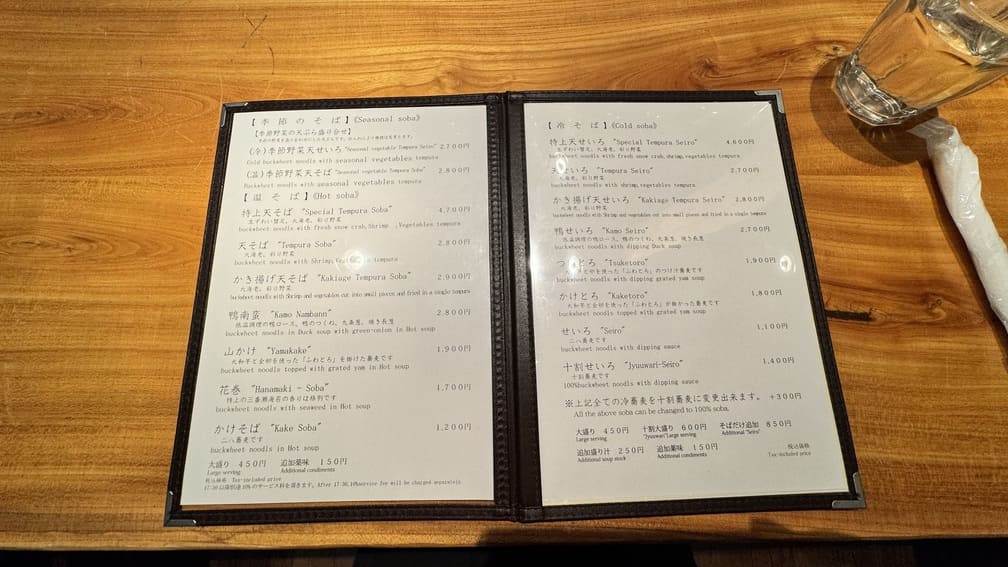 【季節のそば】《Seasonal soba》
【季節野菜の天ぷら盛り合せ】
(冷)季節野菜天せいろ "Seasonal vegetable Tempura Seiro" 2,700円
Cold buckwheat noodles with seasonal vegetables tempura
(温)季節野菜天そば "Seasonal vegetable Tempura Soba" 2,800円
Buckwheat noodles with seasonal vegetables tempura
【温そば】《Hot soba》
特上天そば "Special Tempura Soba" 4,700円
生ずわい蟹足、大海老、彩り野菜
buckwheet noodles with fresh snow crab,Shrimp ,Vegetables tempura
天そば "Tempura Soba" 2,800円
大海老、彩り野菜
buckwheet noodles with Shrimp, tempura
かき揚げ天そば "Kakiage Tempura Soba" 2,900円
大海老、彩り野菜
buckwheet noodles with Shrimp and vegetables cut into small pieces and fried in a single tempura
鴨南蛮 "Kamo Nambann" 2,800円
低温調理の鴨ロース、鴨のつくね、九条葱、焼き長葱
buckwheet noodles in Duck soup with green-onion in Hot soup
山かけ "Yamakake" 1,900円
大和芋と全卵を使った「ふわとろ」を掛けた蕎麦です
buckwheet noodles topped with grated yam in Hot soup
花巻 "Hanamaki - Soba" 1,700円
特上の三番瀬海苔の香りは格別です
buckwheet noodles with seaweed in Hot soup
かけそば "Kake Soba" 1,200円
二八蕎麦です
buckwheet noodles in Hot soup
大盛り 450円 追加薬味 150円
Large serving Additional condiments
税込価格 Tax-included price
17:30以降別途10%のサービス料を頂きます。After 17:30,10%service fee will be charged separately.
【冷そば】《Cold soba》
特上天せいろ "Special Tempura Seiro" 4,600円
生ずわい蟹足、大海老、彩り野菜
buckwheet noodles with fresh snow crab,shrimp,vegetables tempura
天せいろ "Tempura Seiro" 2,700円
大海老、彩り野菜
buckwheet noodles with shrimp,vegetables tempura
かき揚げ天せいろ "Kakiage Tempura Seiro" 2,800円
大海老、彩り野菜
buckwheet noodles with Shrimp and vegetables cut into small pieces and fried in a single tempura
鴨せいろ "Kamo Seiro" 2,700円
低温調理の鴨ロース、鴨のつくね、九条葱、焼き長葱
buckwheet noodles with dipping Duck soup
つけとろ "Tsuketoro" 1,900円
大和芋と全卵を使った「ふわとろ」のつけ汁蕎麦です
buckwheet noodles with dipping grated yam soup
かけとろ "Kaketoro" 1,800円
大和芋と全卵を使った「ふわとろ」が掛かった蕎麦です
buckwheet noodles topped with grated yam soup
せいろ "Seiro" 1,100円
二八蕎麦です
buckwheet noodles with dipping sauce
十割せいろ "Jyuuwari-Seiro" 1,400円
十割蕎麦です
100%buckwheet noodles with dipping sauce
※上記全ての冷蕎麦を十割蕎麦に変更出来ます。 +300円
All the above soba can be changed to 100% soba.
大盛り 450円 十割大盛り 600円 そばだけ追加 850円
Large serving "Jyuuwari"Large serving Additional "Seiro"
追加盛り汁 250円 追加薬味 150円 税込価格
Additional soup stock Additional condiments Tax-included price